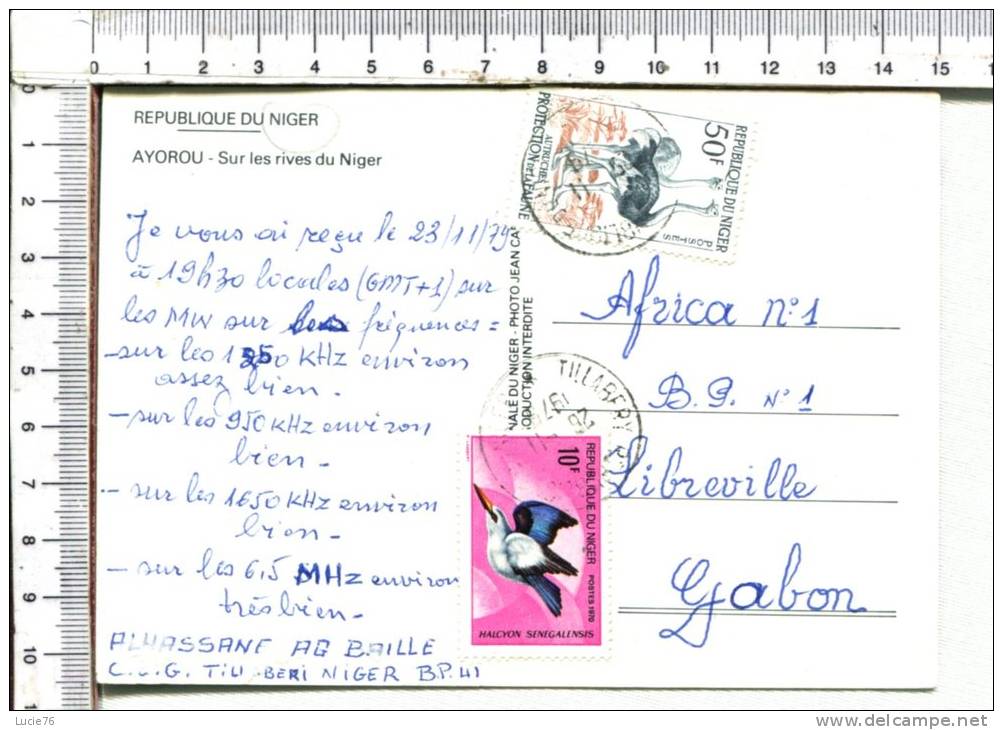 0 1 2 3 4 5 6 7 8 9 10 11 12 13 14 15
0
1
2
3
4
5
6
7
8
9
10
REPUBLIQUE DU NIGER
AYOROU - Sur les rives du Niger
Je vous ai reçu le 23/11/79
à 19h30 locales (GMT+1) sur
les MW sur fréquences =
- sur les 1350 KHz environ
assez bien.
- sur les 950 KHz environ
bien -
- sur les 1650 KHz environ
bien -
- sur les 6,5 MHz environ
très bien -
ALHASSANE AG BAILLE
C.E.G. TILLABERI NIGER B.P. 41
NALE DU NIGER - PHOTO JEAN CA
ODUCTION INTERDITE
REPUBLIQUE DU NIGER
POSTES
50F
AUTRUCHES
PROTECTION DE LA FAUNE
TILLABERY
REPUBLIQUE DU NIGER
POSTES 1970
10F
HALCYON SENEGALENSIS
Africa n°1
B.P. N°1
Libreville
Gabon
Lucie76
delcampe.net